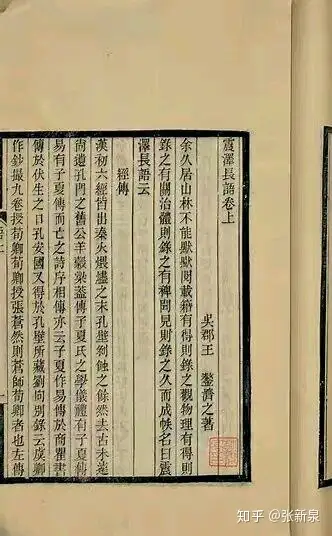 震澤長語卷上
吳郡王 鏊濟之著
余久居山林不能默默閱載籍有得則錄之觀物理有得則
錄之有關治體則錄之有裨聞見則錄之久而成帙名曰震
澤長語云
經傳
漢初六經皆出秦火煨燼之末孔壁剝蝕之餘然去古未遠
尚遺孔門之舊公羊穀梁蓋傳子夏氏之學儀禮有子夏傳
易有子夏傳而亡之詩序相傳亦云子夏作易傳於商瞿書
傳於伏生之口孔安國又得於孔壁所藏劉向別錄云虞卿
作鈔撮九卷授荀卿荀卿授張蒼然則蒼師荀卿者也左傳
知乎 @张新泉